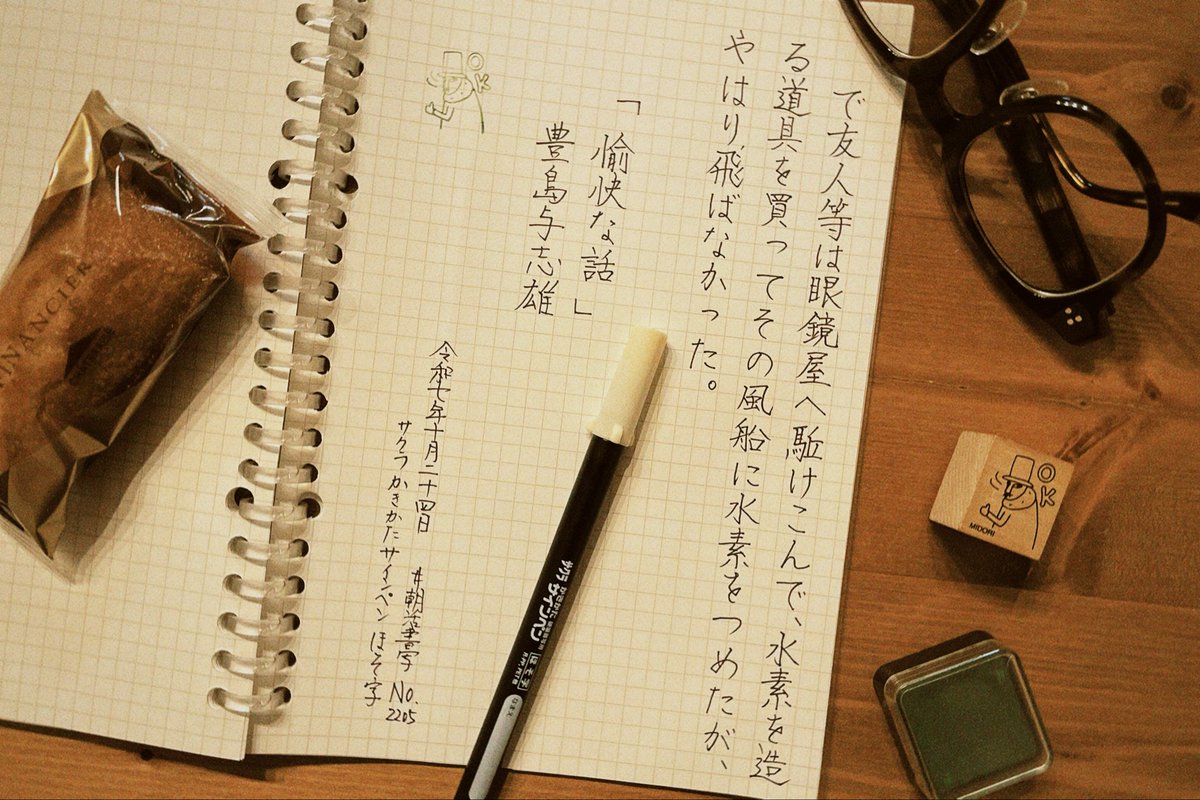 で友人等は眼鏡屋へ駈けこんで、水素を造
る道具を買ってその風船に水素をつめたが、
やはり飛ばなかった。
「愉快な話」
豊島与志雄
令和七年十月二十四日
サクラかきかたサインペン ほそ字
#朝活書写 No.
2205
OK
FINANCIER
サクラ かきかた
サインペン
ほそ字
OK
MIDORI